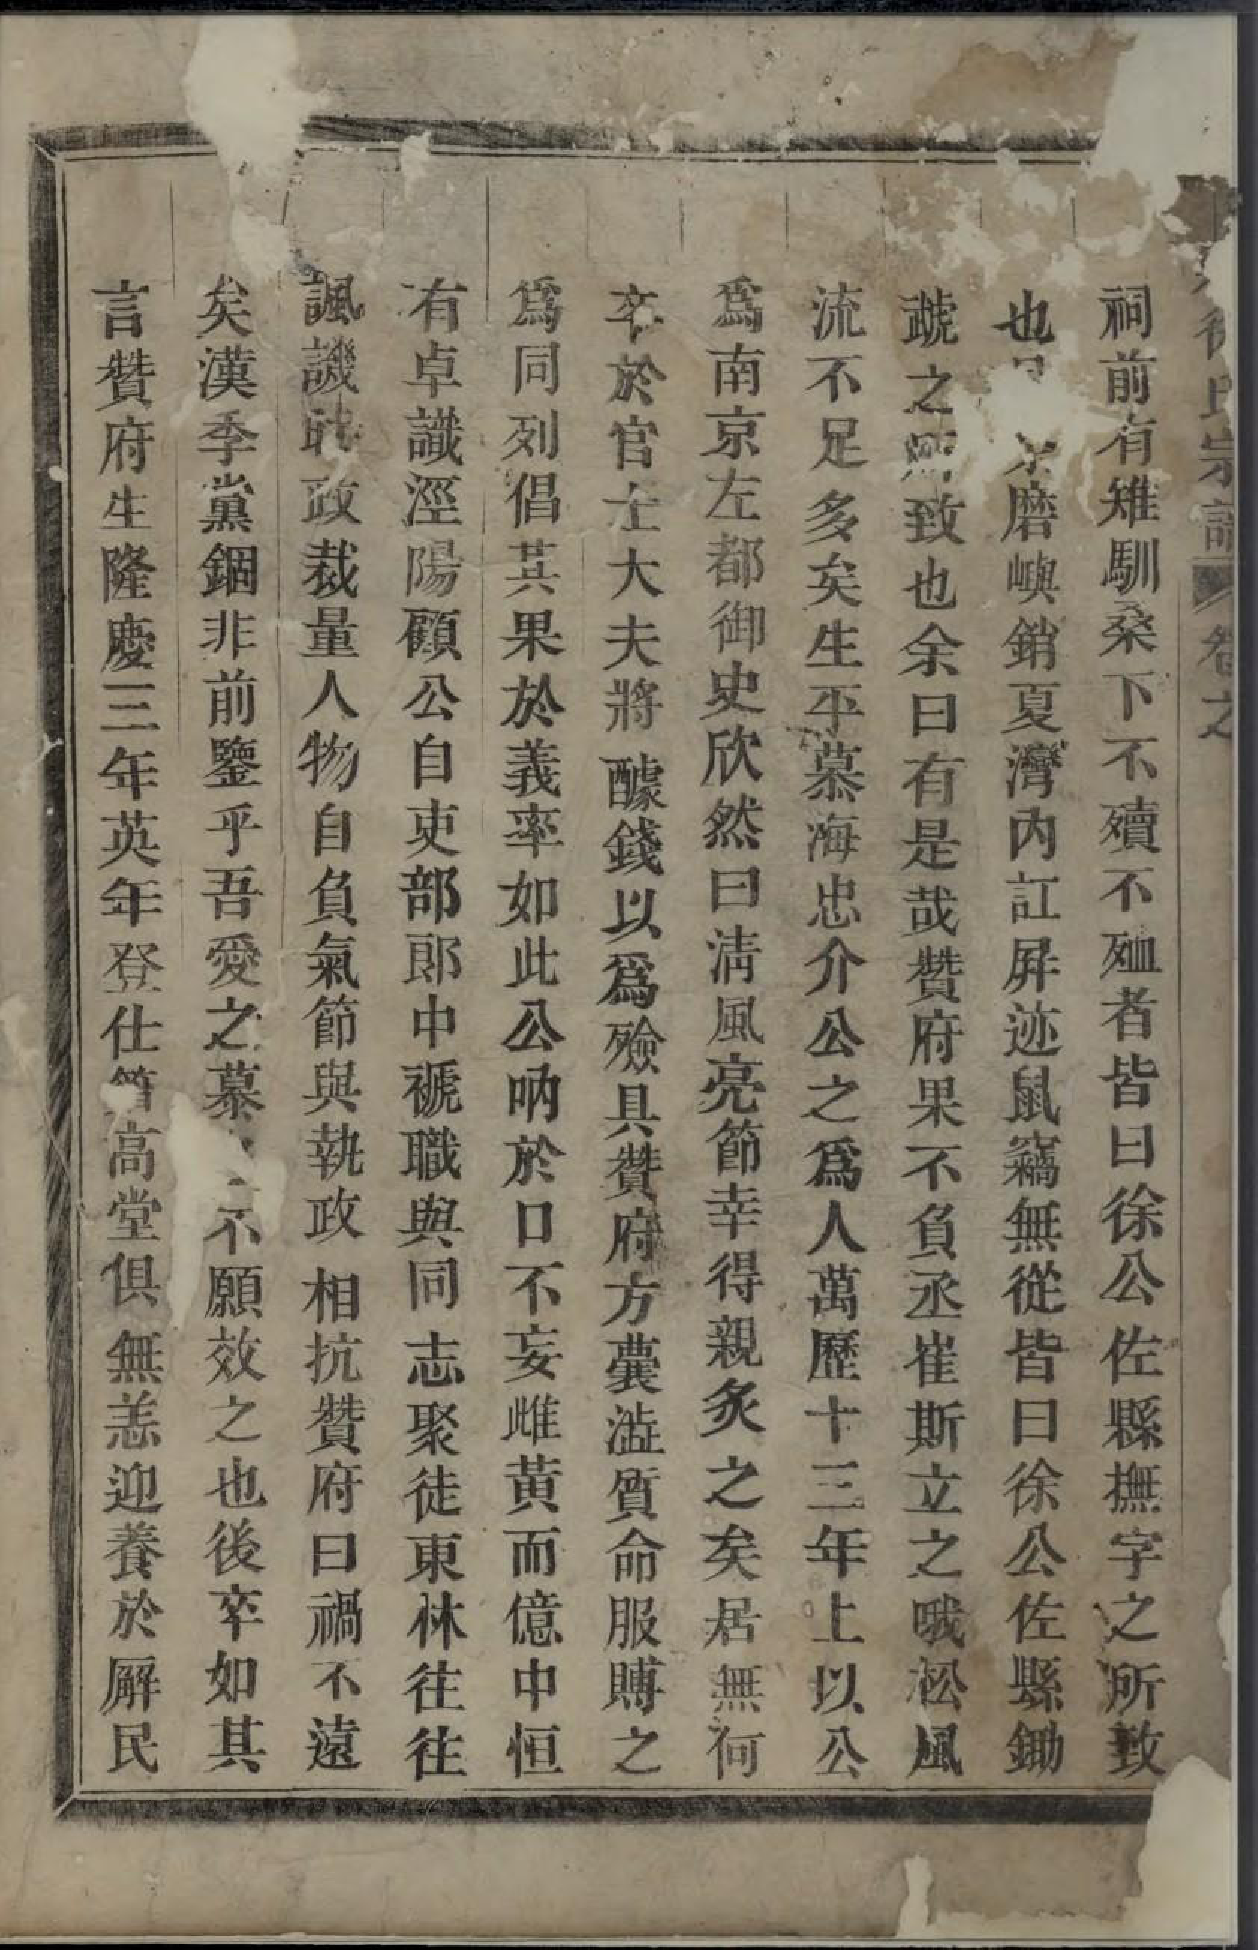 徐氏宗譜 卷之
祠前有雉馴桑下不殰不殈者皆曰徐公佐縣撫字之所致
也 磨嶼銷夏灣內訌屏迹鼠竊無從皆曰徐公佐縣鋤
虣之所致也余曰有是哉贊府果不負丞崔斯立之哦松風
流不足多矣生平慕海忠介公之爲人萬歷十三年上以公
爲南京左都御史欣然曰清風亮節幸得親炙之矣居無何
卒於官士大夫將醵錢以爲殮具贊府方囊澁質命服賻之
爲同列倡其果於義率如此公吶於口不妄雌黃而億中恒
有卓識涇陽顧公自吏部郎中褫職與同志聚徒東林往往
諷譏時政裁量人物自負氣節與執政相抗贊府曰禍不遠
矣漢季黨錮非前鑒乎吾愛之慕 不願效之也後卒如其
言贊府生隆慶三年英年登仕 高堂俱無恙迎養於廨民